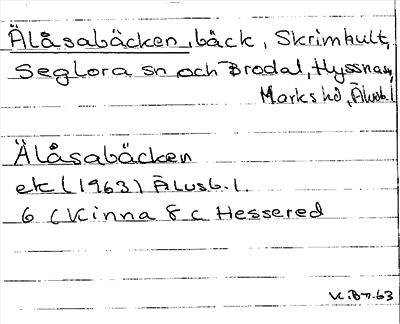 Älåsabäcken, bäck, Skrimhult,
Seglora sn och Brodal, Hyssnas,
Marks hd, Älvsb.l.
Älåsabäcken
ek (1963) Älvsb.l.
6 (Kinna 8 c Hessered
K.Bn.63